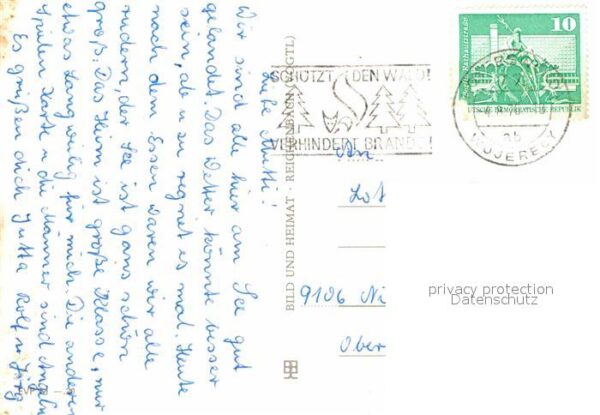 Liebe Mutti!
Wir sind alle hier am See gut
gelandet. Das Wetter könnte besser
sein, ab u. zu regnet es mal. Heute
nach dem Essen waren wir alle
rudern, der See ist ganz schön
groß. Das Heim ist große Klasse, nur
etwas langweilig für mich. Die anderen
spielen Karten u. die Männer sind Angeln
Es grüßen dich Jutta Rolf u. Jörg
BILD UND HEIMAT · REICHENBACH (VOGTL)
SCHÜTZT DEN WALD!
VERHINDERT BRÄNDE!
10
DEUTSCHE DEMOKRATISCHE REPUBLIK
An
Lot
9106 Ni
Ober
privacy protection
Datenschutz